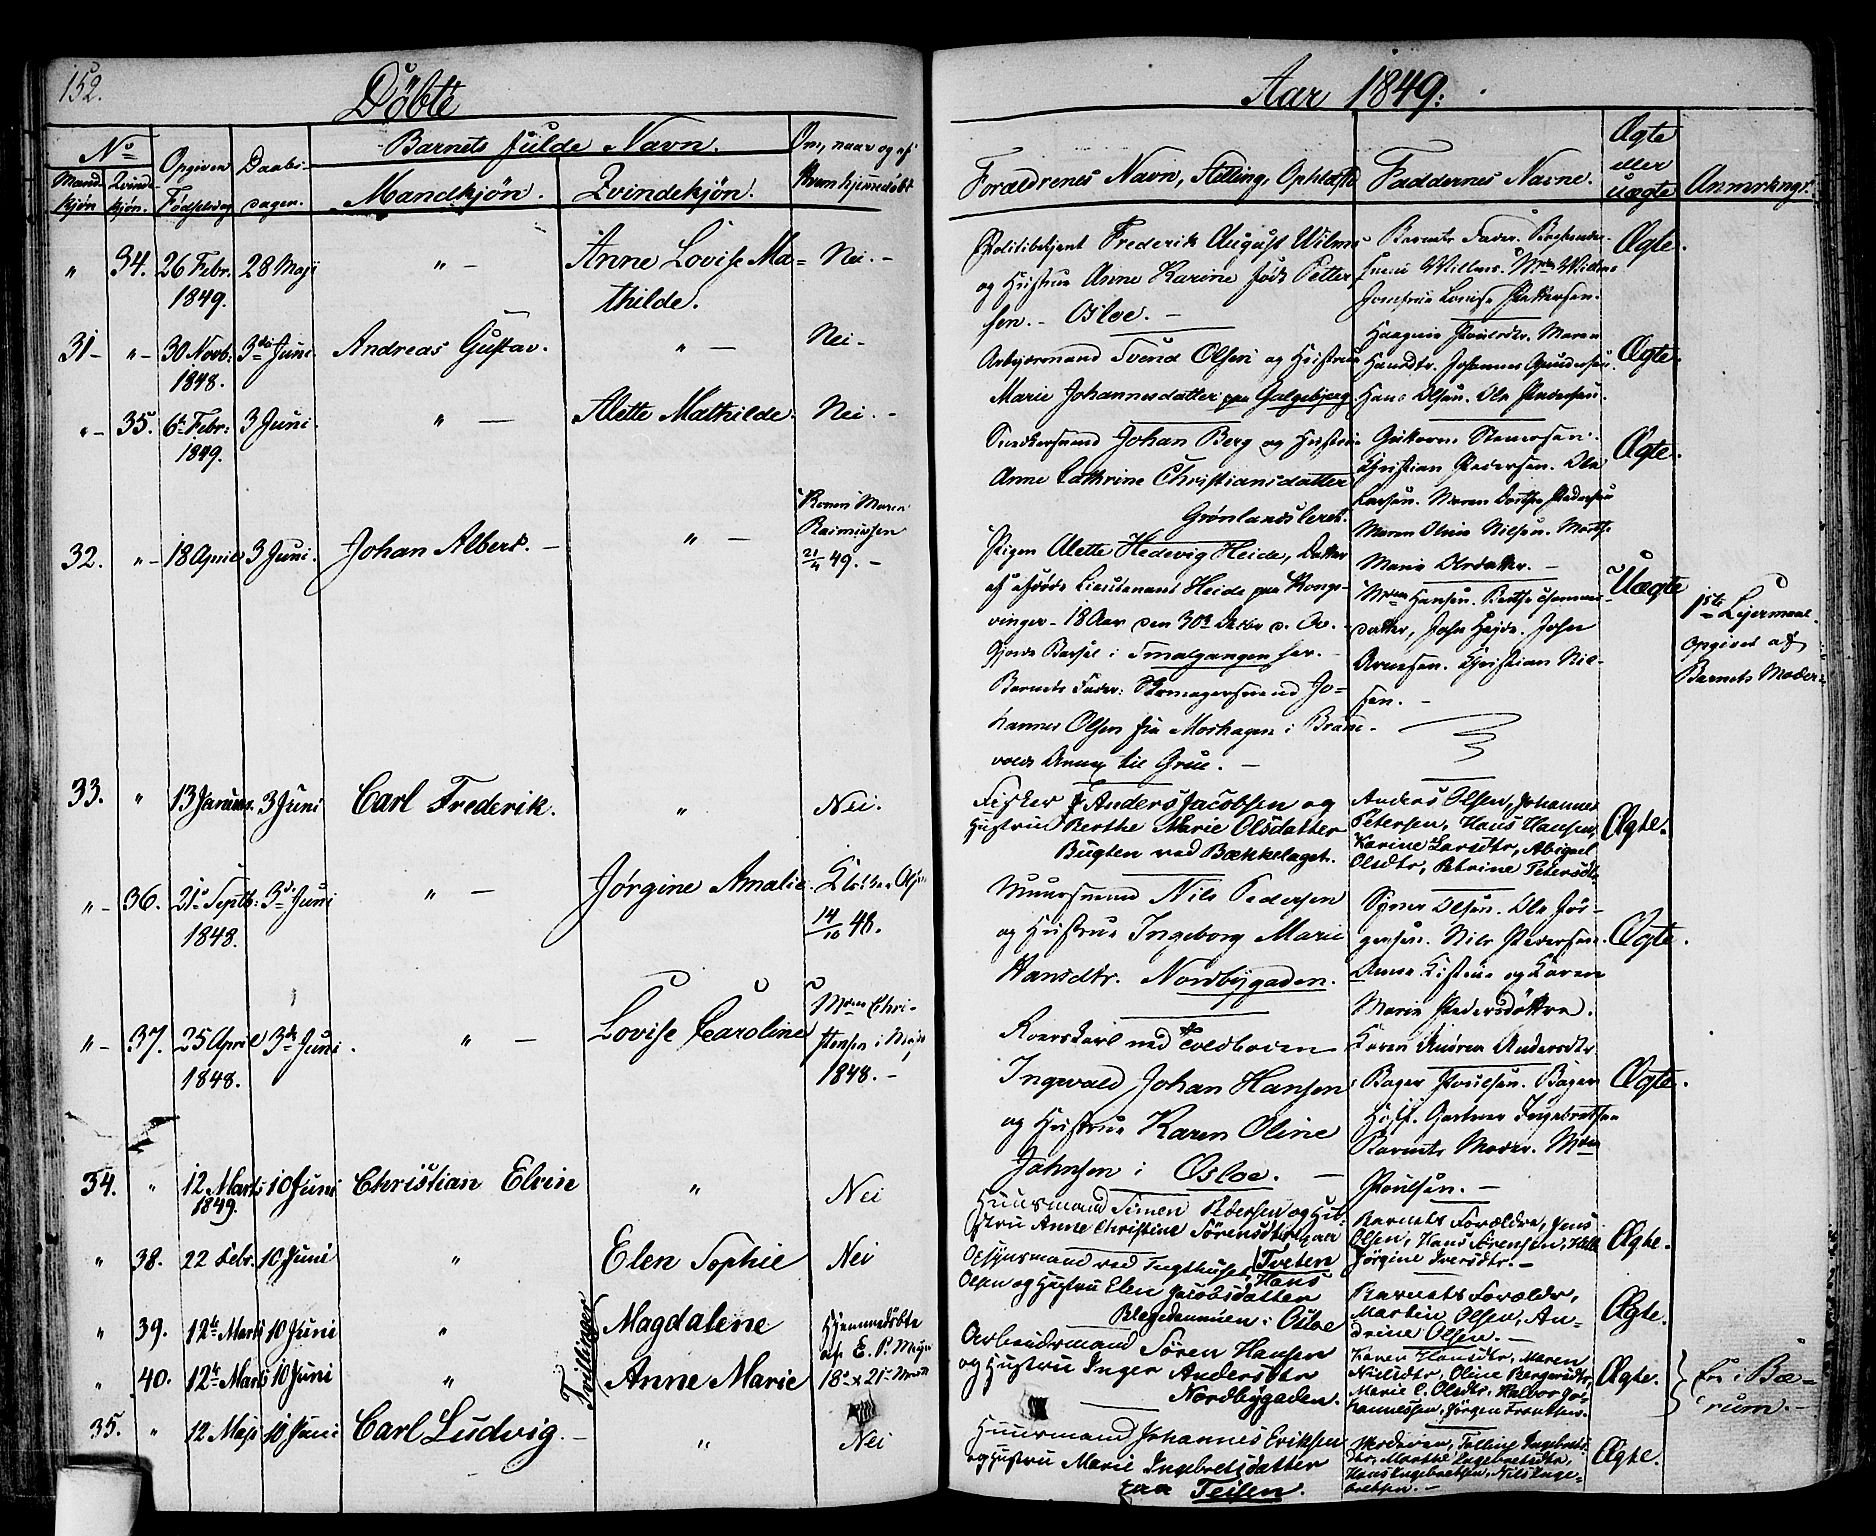 152.
Döbte
Aar 1849.
No
Mand-kjön
Qvinde-kjön.
Opgiven Födselsdag
Daabs-dagen.
Barnets fulde Navn.
Mandkjön.
Qvindekjön.
Om, naar og af hvem hjemmedöbt
Forældrenes Navn, Stilling, Opholdst
Faddernes Navne.
Ægte eller Uægte
Anmærkngr.
" 34. 26 Febr. 1849. 28 Maji " — Anne Lovise Ma=
thilde.
Nei. -
Politibetjent Frederik August Wilms
og Hustrue Anne Karine föds Petter
sen. - Osloe. -
Barnets Fader.
Jomfrue Louise Pettersen.
Ægte.
31 - " - 30 Novb: 1848. 3die Juni Andreas Gustav. " -
Nei -
Arbejdsmand Svend Olsen og Hustrue
Marie Johannesdatter paa Galgebjerg
Hansdtr. Johannes Gundersen.
Hans Olsen. Ole Pedersen.
Ægte.
" - 35. 6te Febr: 1849. 3 Juni. " — Alette Mathilde. Nei. -
Snedkersvend Johan Berg og Hustrue
Anne Cathrine Christiansdatter
Grönlandsleret.
Christian Pedersen. Ole
Larsen. Maren Dorthe Pedersen
Maren Oline Nielsen. Marthe
Marie Olsdatter. -
Ægte.
32. " - 18 April 3 Juni. Johan Albert. - " -
Konen Maren
Rasmussen
21/4 49. -
Pigen Alette Hedevig Heide, Datter
af afdöde Lieutenant Heide paa Kongs-
vinger - 18 Aar den 30te Decbr d. A. -
gjorde Barsel i Smalgangen her. -
Barnets Fader: Skomagersvend Jo=
hannes Olsen fra Moshagen i Brand-
volds Annex til Grue. -
Hansen. Berthe
datter, John Hejde. John
Arnesen. Christian Niel-
sen. -
Uægte
1ste Lejermaal
opgivet af
Barnets Moder
33. " 13 Januar. 3 Juni Carl Frederik. " Nei.
Fisker Anders Jacobsen og
Hustru Berthe Marie Olsdatter
Bugten ved Bækkelaget.
Anders Olsen, Johannes
Petersen, Hans Hansen,
Karine Larsdtr, Abigael
Olsdtr, Petrine Petersdtr.
Ægte.
" - 36. 21de Septb: 1848. 3die Juni " — Jørgine Amalie.
14/10 48.
Muursvend Nils Pedersen
og Hustrue Ingeborg Marie
Hansdtr. Nordbygaden.
Olsen. Ole Jör-
gensen. Nils Pedersen.
Anne Kistine og Karen
Marie Pedersdöttre.
Ægte.
" - 37. 25 April 1848. 3die Juni. " — Lovise Caroline
Mdm Chri-
stensen i Maji
1848. -
Roerskarl ved Toldboden
Ingevald Johan Hansen
og Hustrue Karen Oline
Jahnsen i Osloe. -
Karen Andrea Andersdtr
Bager Poulsen. Bager
Hoff. Gartner Ingebretsen
Barnets Moder. Mdm
Poulsen. -
Ægte.
34. " 12 Marts 1849. 10 Juni Christian Elvin " Nei
Huusmand Simen Pedersen og Hu-
stru Anne Christine Sörensdtr paa
Tveten
Barnets Forældre, Jens
Olsen, Hans Sörensen,
Jörgine Iversdtr. -
Ægte.
" 38. 22 Febr. 10 Juni " Elen Sophie Nei
Opsynsmand ved Tugthuset, Hans
Olsen og Hustru Elen Jacobsdatter
Blegedammen i Osloe
Barnets Forældr,
Martin Olsen, An-
drine Olsen. -
Ægte.
" 39. 12te Marts 10 Juni " Tvillinger Magdalene
Hjemmedöbte
af E. P.
" 40. 12te Marts 10 Juni " Anne Marie
18de & 21de Marts
Arbeidsmand Sören Hansen
og Hustru Inger Andersdtr
Nordbygaden.
Karen Hansdtr, Maren
Nielsdtr, Oline
Marie C. Olsdtr, Halvor Jo-
hannessen, Jörgen
Ægte.
Fra Bæ-
rum. -
35. " 12 Maji 10 Juni Carl Ludvig. - " Nei
Huusmand Johannes Eriksen
og Hustru Marie Ingebretsdatter
paa Teilen.
Moderen,
Marthe Ingebretsdtr,
Hans Ingebretsen, Nils Inge-
bretsen. -
Ægte.